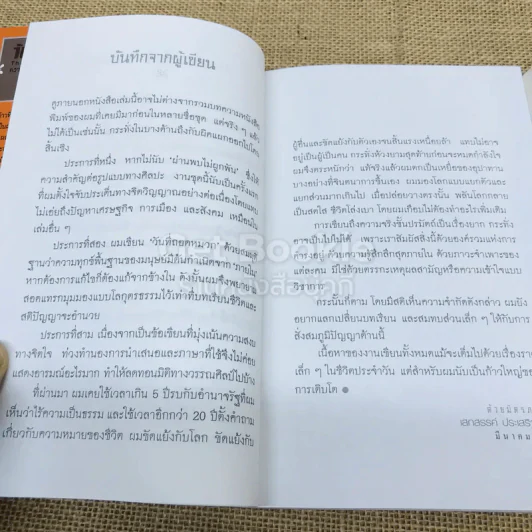 บันทึกจากผู้เขียน
ดูภายนอกหนังสือเล่มนี้อาจไม่ต่างจากรวมบทความหนังสือ
พิมพ์ของผมที่เคยมีมาก่อนในหลายชื่อชุด แต่จริง ๆ แล้ว
ไม่ได้เป็นเช่นนั้น กระทั่งในบางด้านถึงกับผิดแผกออกไปโดย
สิ้นเชิง
ประการที่หนึ่ง หากไม่นับ "ผ่านพบไม่ผูกพัน" ซึ่งให้
ความสำคัญต่อรูปแบบทางศิลปะ งานชุดนี้นับเป็นครั้งแรก
ที่ผมตั้งใจจับประเด็นทางจิตวิญญาณอย่างต่อเนื่องโดยแทบ
ไม่เอ่ยถึงปัญหาเศรษฐกิจ การเมือง และสังคม เหมือนใน
เล่มอื่น ๆ
ประการที่สอง ผมเขียน "วันที่ถอดหมวก" ด้วยสมมุติ
ฐานว่าความทุกข์พื้นฐานของมนุษย์มีต้นกำเนิดจาก"ภายใน"
หากต้องการแก้ไขก็ต้องแก้จากข้างใน ดังนั้นผมจึงพยายาม
สอดแทรกมุมมองแบบโลกุตรธรรมไว้เท่าที่บทเรียนชีวิตและ
สติปัญญาจะอำนวย
ประการที่สาม เนื่องจากเป็นข้อเขียนที่มุ่งเน้นความสงบ
ทางจิตใจ ท่วงทำนองการนำเสนอและภาษาที่ใช้จึงไม่ค่อย
แสดงอารมณ์อะไรมาก ทำให้ลดทอนมิติทางวรรณศิลป์ไปบ้าง
ที่ผ่านมา ผมเคยใช้เวลาเกิน 5 ปีรบกับอำนาจรัฐที่ผม
เห็นว่าไร้ความเป็นธรรม และใช้เวลาอีกกว่า 20 ปีตั้งคำถาม
เกี่ยวกับความหมายของชีวิต ผมขัดแย้งกับโลก ขัดแย้งกับ
ผู้อื่นและขัดแย้งกับตัวเองจนสิ้นแรงเหนื่อยล้า แทบไม่อาจ
อยู่เป็นผู้เป็นคน กระทั่งห้วงยามสุดท้ายก่อนจะหมดกำลังใจ
ผมจึงตระหนักว่า แท้จริงแล้วผมตกเป็นเหยื่อของอุปาทาน
บางอย่างที่จินตนาการขึ้นเอง ผมมองโลกแบบแยกตัวและ
แยกส่วนมากเกินไป เมื่อปล่อยวางตรงนั้น พลันโลกกลาย
เป็นสดใส ชีวิตโล่งเบา โดยผมเกือบไม่ต้องทำอะไรเพิ่มเติม
การเขียนถึงความจริงชั้นปรมัตถ์เป็นเรื่องยาก กระทั่ง
อาจเป็นไปไม่ได้ เพราะเราสัมผัสสิ่งนี้ด้วยองค์รวมแห่งการ
ดำรงอยู่ ด้วยความรู้สึกลึกสุดภายใน ด้วยภาวะจำเพาะของ
แต่ละคน มิใช่ด้วยตรรกะเหตุผลสามัญหรือความเข้าใจแบบ
วิชาการ
กระนั้นก็ตาม โดยมีสติเห็นความจำกัดดังกล่าว ผมยัง
อยากแลกเปลี่ยนบทเรียน และสมทบส่วนเล็ก ๆ ให้กับการ
สั่งสมภูมิปัญญาด้านนี้
เนื้อหาของงานเขียนทั้งหมดแม้จะเต็มไปด้วยเรื่องราว
เล็ก ๆ ในชีวิตประจำวัน แต่สำหรับผมนับเป็นก้าวใหญ่ของ
การเติบโต ●
ด้วยมิตรภ
เสกสรรค์ ประเสริ
มีนาคม